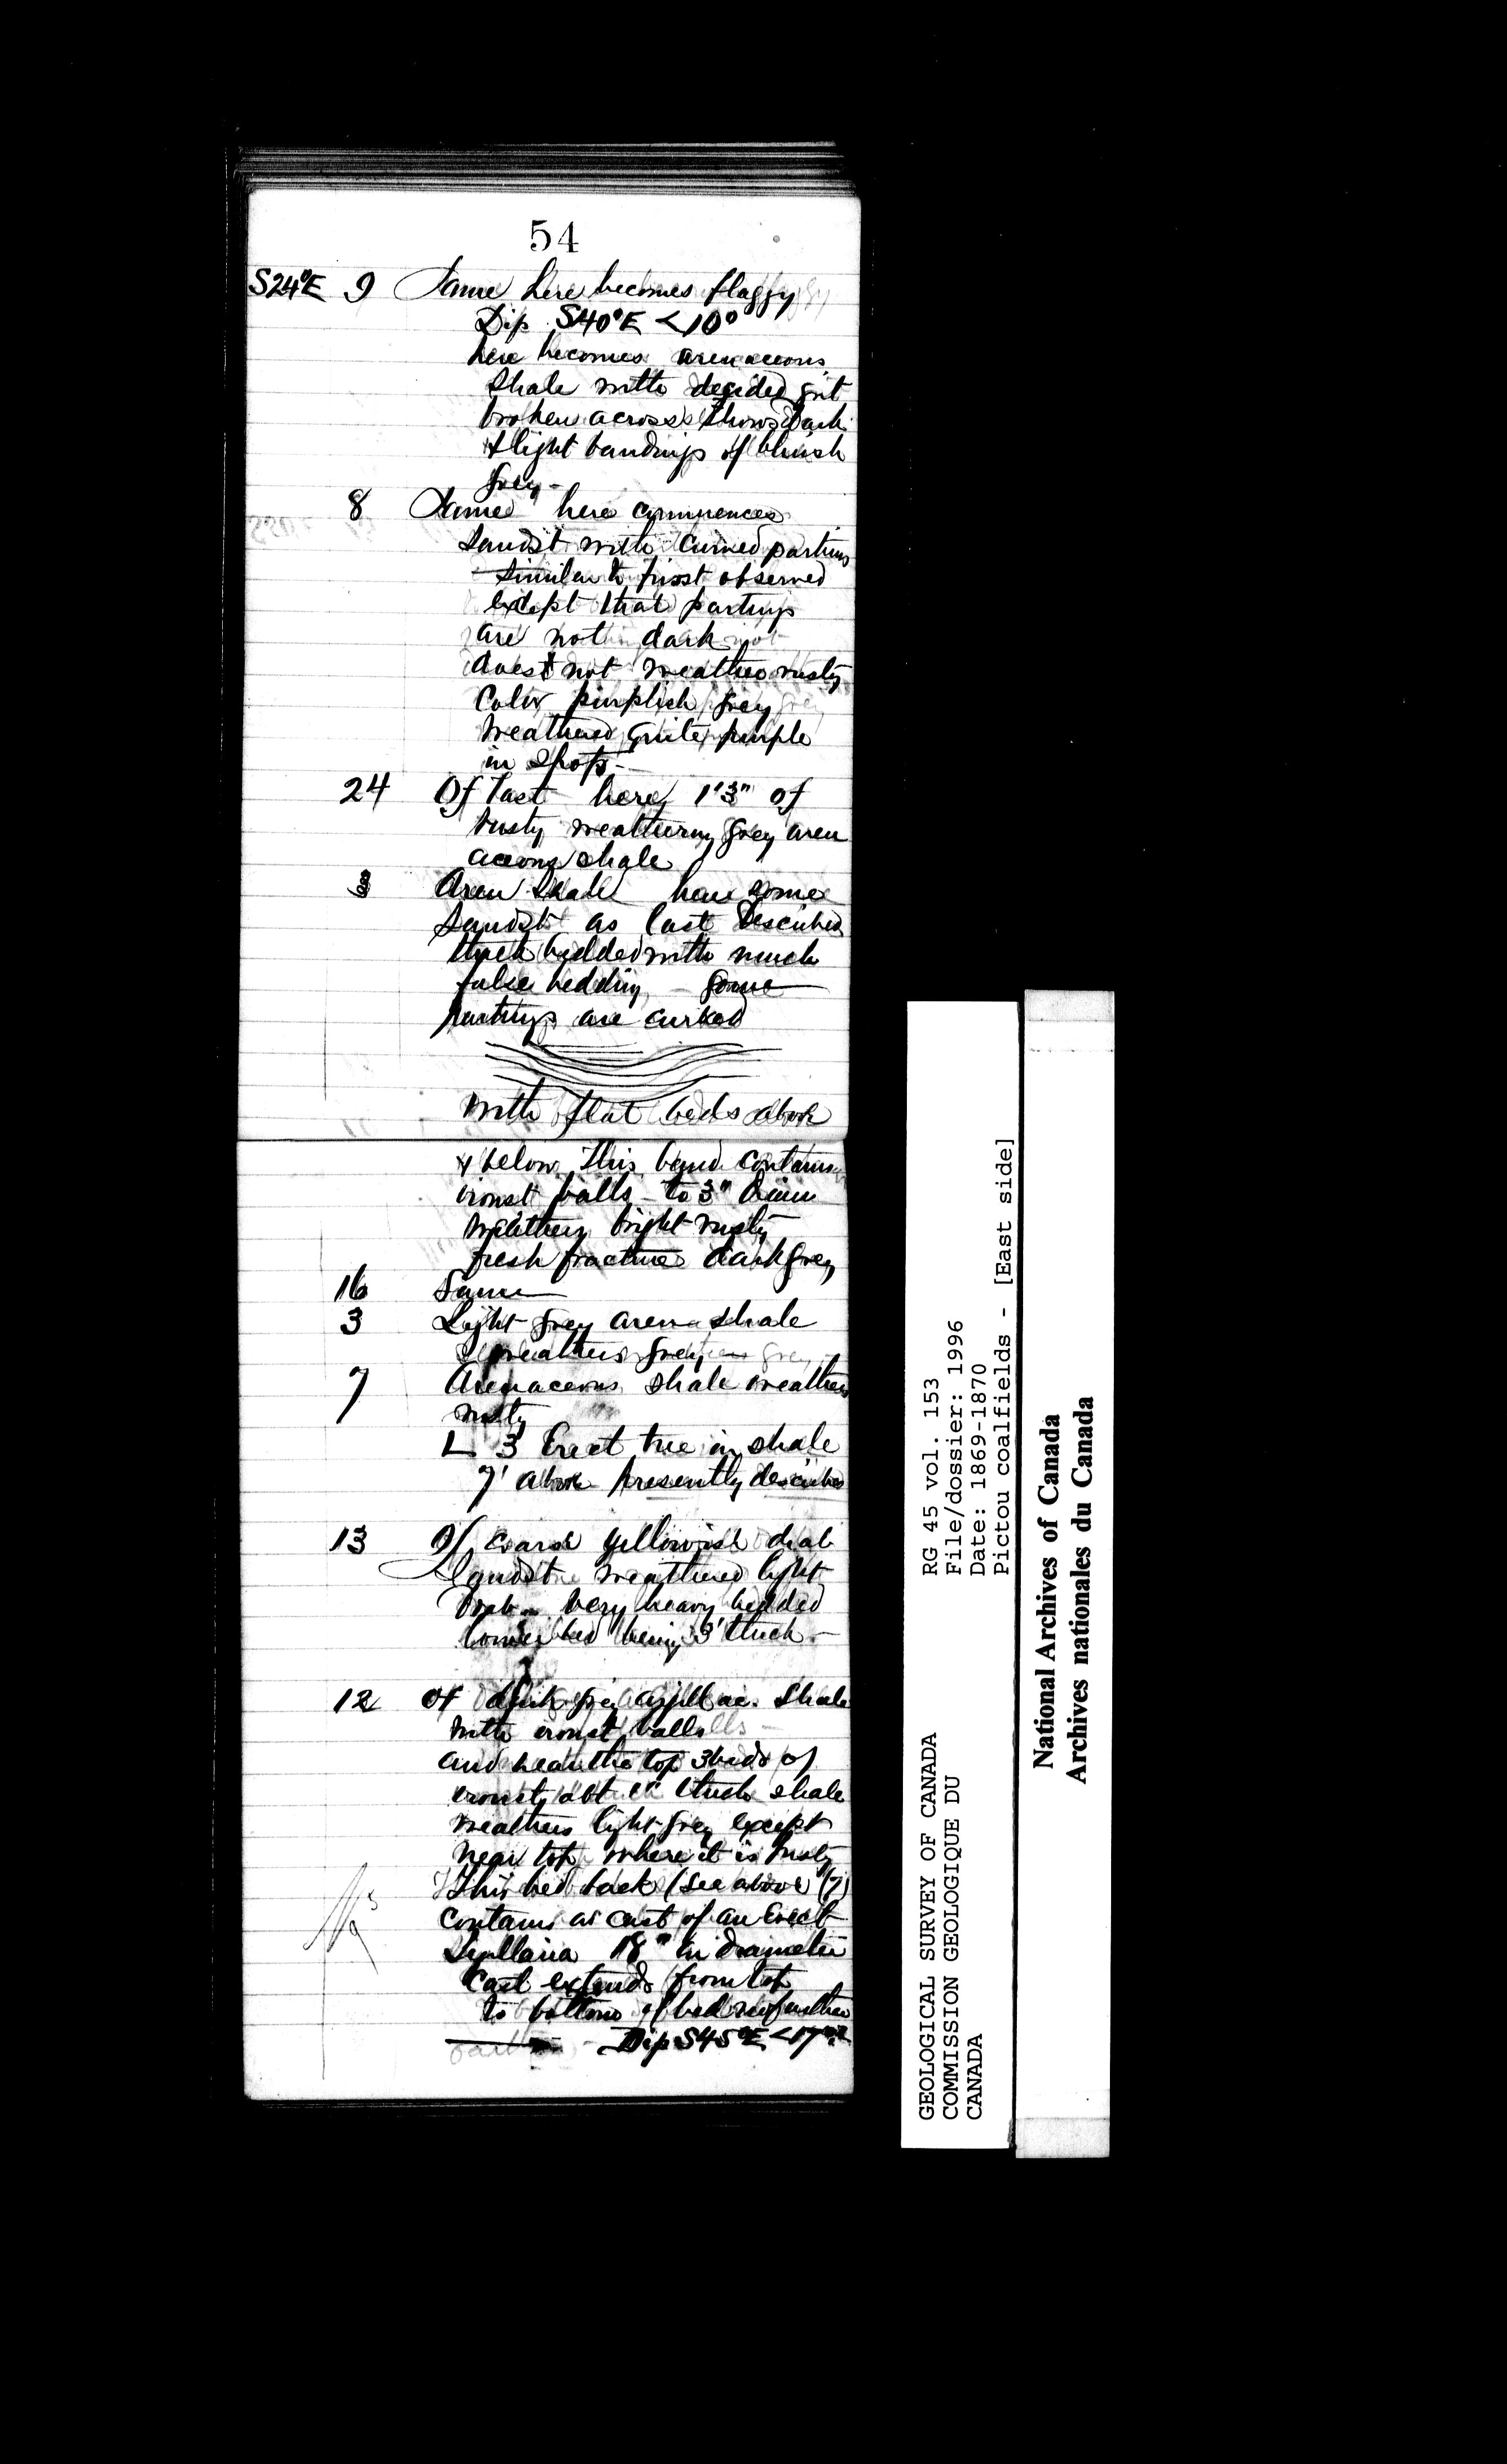 54
S24°E 9 Same here becomes flaggy
Dip S40°E <10°
here becomes arenaceous
shale with decided grit
broken across shows dark
& light bandings of bluish
grey -
8 Same here commences
Sandst with curved partings
similar to first observed
except that partings
are not dark
does not weather rusty
Color purplish grey
weathered quite purple
in spots -
24 Of last here 1'3" of
rusty weathering grey aren
aceous shale
Aren Shale here some
Sandst as last described
thick bedded with much
false bedding - some
partings are curved
with flat beds above
& below This band contains
ironst balls - to 3" diam
weathers bright rusty
fresh fracture dark grey
16 Same
3 Light grey aren shale
weathers grey
7 Arenaceous shale weathers
rusty
L 3 Erect tree in shale
7' above presently described
13 Of coarse yellowish drab
Sandstone weathered light
drab - very heavy bedded
lower bed being 3' thick -
12 Of dark grey argillac. Shale
with ironst balls
and near the top 3 beds of
ironst abt 1" thick shale
weathers light grey except
near top where it is rusty
This bed back (see above (7)
contains a cast of an Erect
Sigillaria 18" in diameter
Cast extends from top
to bottom of bed no further
Dip S45°E <17°
GEOLOGICAL SURVEY OF CANADA
COMMISSION GEOLOGIQUE DU
CANADA
RG 45 vol. 153
File/dossier: 1996
Date: 1869-1870
Pictou coalfields - [East side]
National Archives of Canada
Archives nationales du Canada